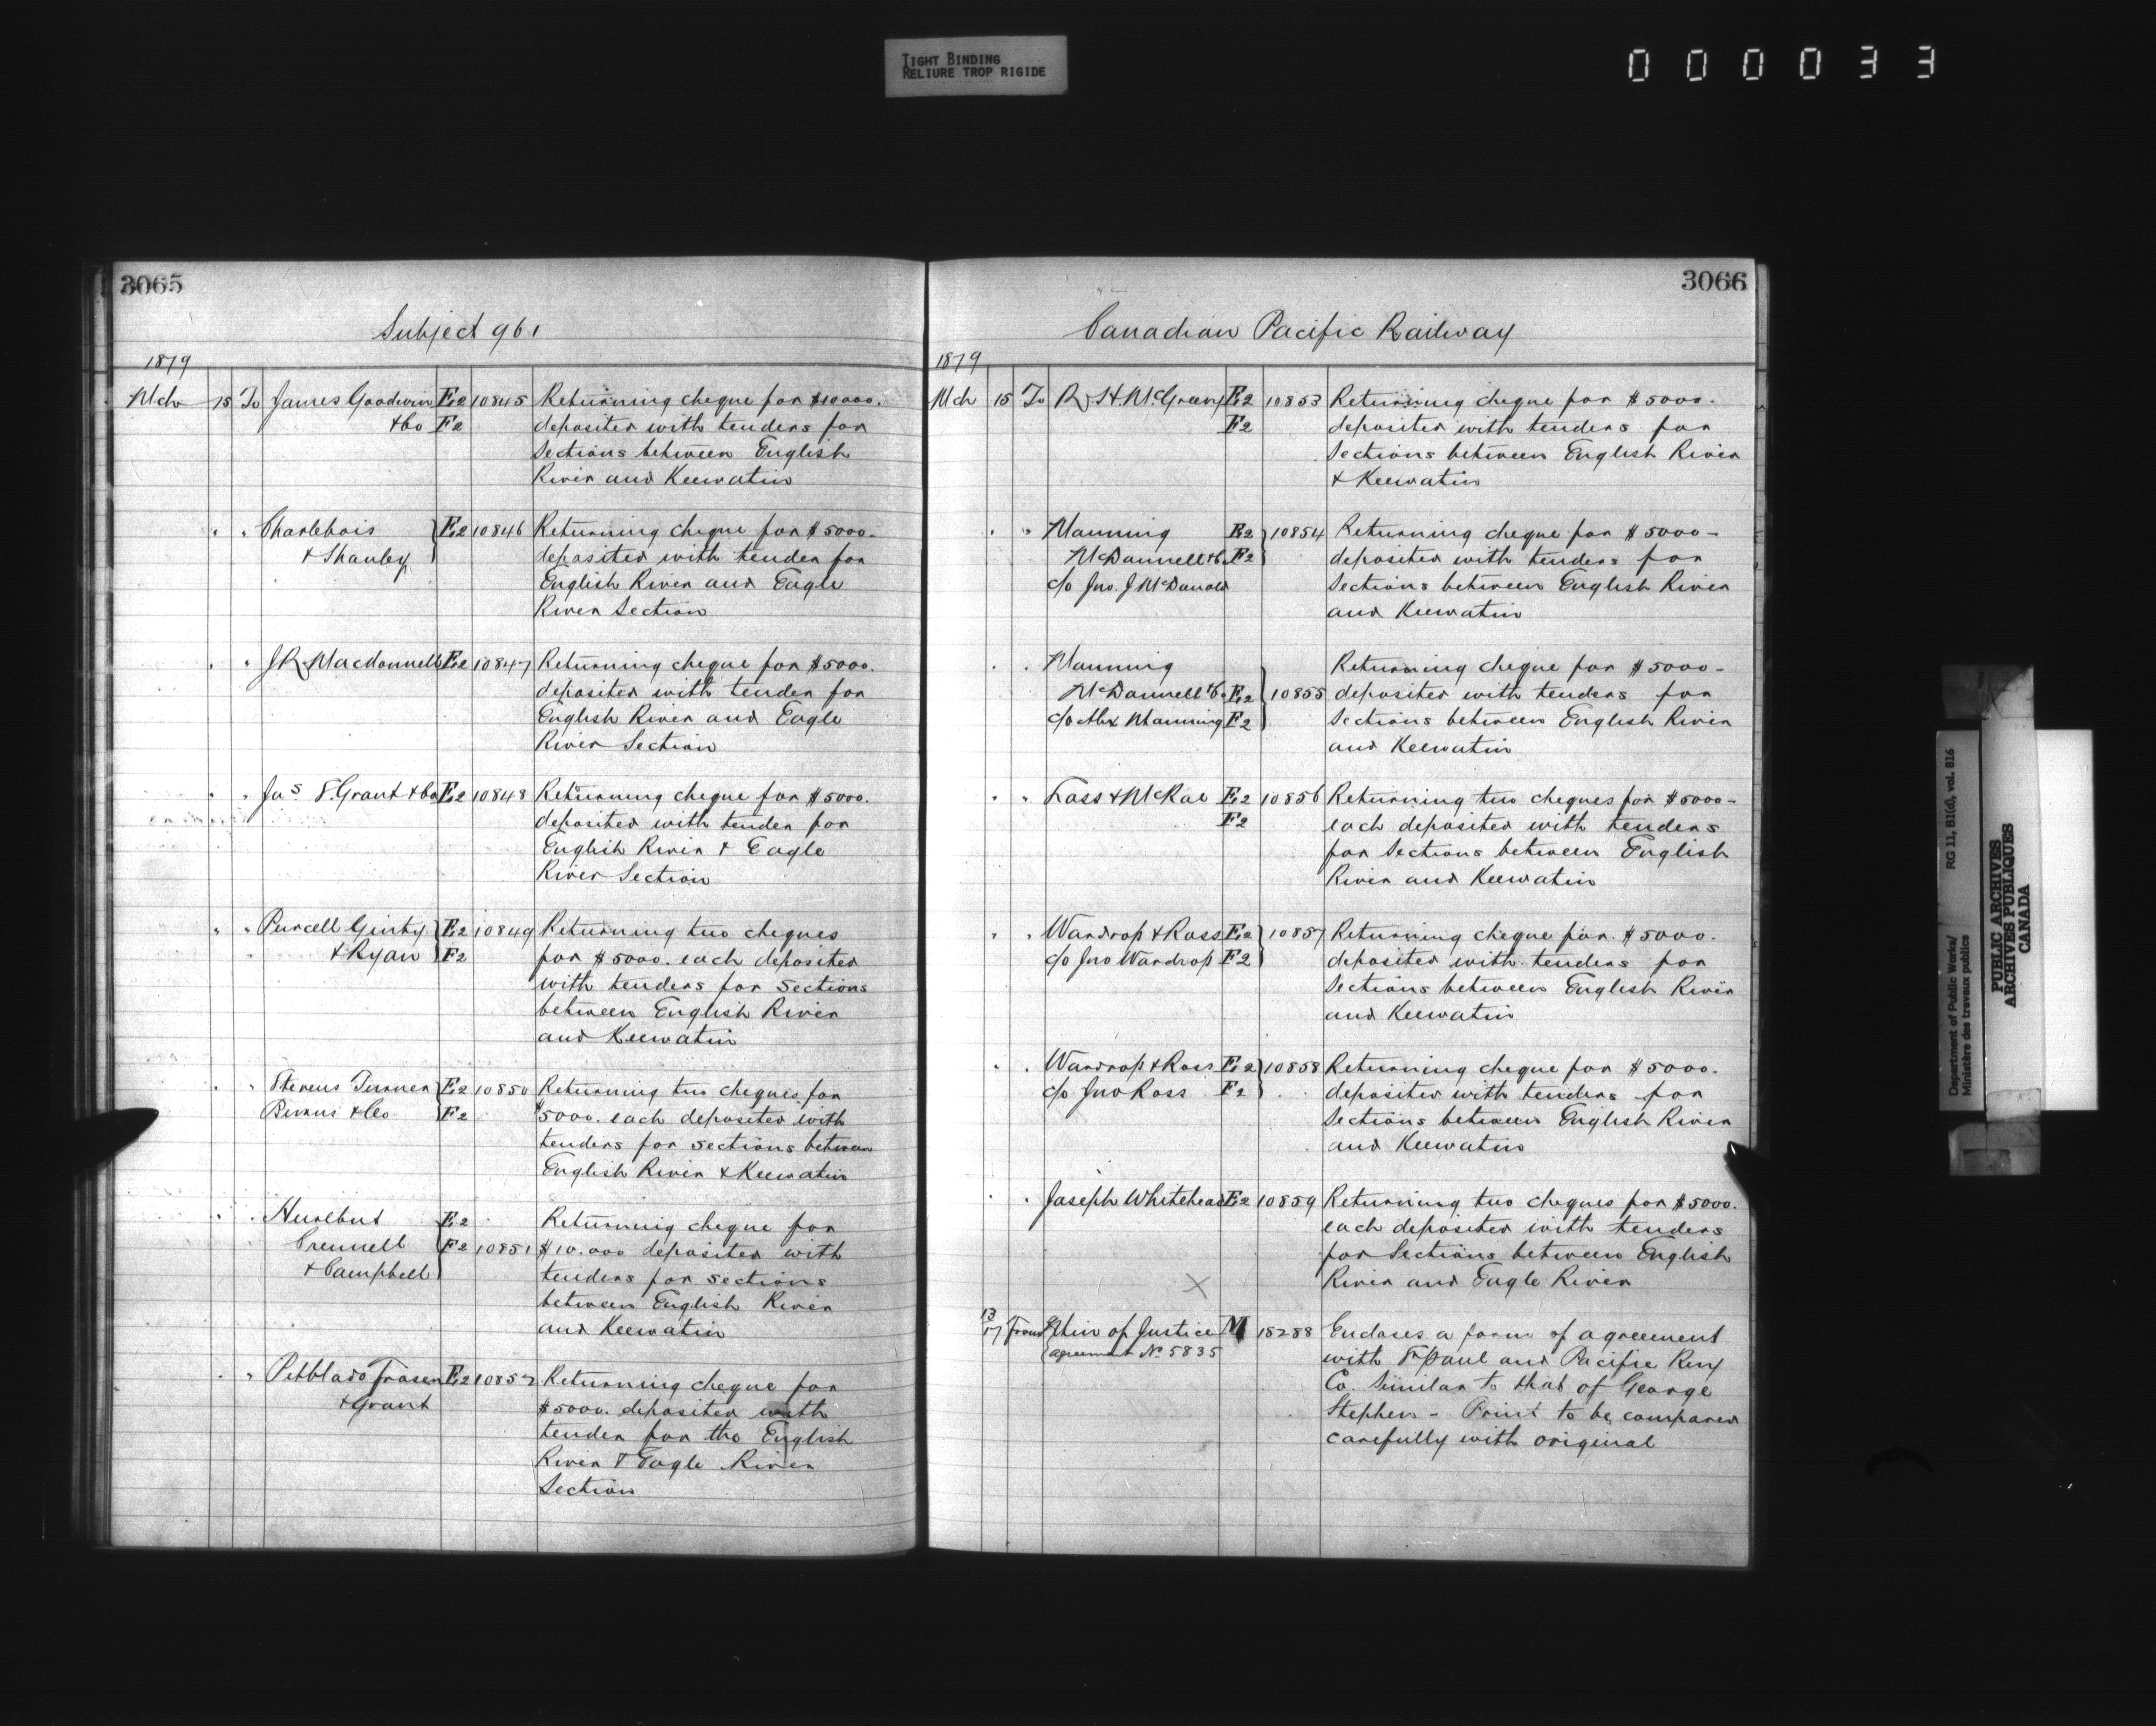 TIGHT BINDING
RELIURE TROP RIGIDE
000033
3065
Subject 961
1879
Mch 15 To James Goodwin E2 10845 Returning cheque for $10000.
& Co F2 deposited with tenders for
Sections between English
River and Keewatin
" " Charlebois E2 10846 Returning cheque for $5000-
& Shanley deposited with tender for
English River and Eagle
River Section
" " J R Macdonnell E2 10847 Returning cheque for $5000.
deposited with tender for
English River and Eagle
River Section
" " Jas S. Grant & Co E2 10848 Returning cheque for $5000.
deposited with tender for
English River & Eagle
River Section
" " Purcell Ginty E2 10849 Returning two cheques
& Ryan F2 for $5000. each deposited
with tenders for Sections
between English River
and Keewatin
" " Stevens Turner E2 10850 Returning two cheques for
Burns & Co F2 $5000. each deposited with
tenders for sections between
English River & Keewatin
" " Hurlbut E2 Returning cheque for
Crennell F2 10851 $10.000 deposited with
& Campbell tenders for sections
between English River
and Keewatin
" " Pitblado Fraser E2 10852 Returning cheque for
& Grant $5000. deposited with
tender for the English
River & Eagle River
Section
3066
Canadian Pacific Railway
1879
Mch 15 To R H McGreevy E2 10853 Returning cheque for $5000.
F2 deposited with tenders for
Sections between English River
& Keewatin
" " Manning E2 10854 Returning cheque for $5000-
McDonnell & Co F2 deposited with tenders for
c/o Jno. J McDonald Sections between English River
and Keewatin
" " Manning Returning cheque for $5000-
McDonnell & Co E2 10855 deposited with tenders for
c/o Alex Manning F2 Sections between English River
and Keewatin
" " Foss & McRae E2 10856 Returning two cheques for $5000-
F2 each deposited with tenders
for Sections between English
River and Keewatin
" " Wardrop & Ross E2 10857 Returning cheque for $5000.
c/o Jno Wardrop F2 deposited with tenders for
Sections between English River
and Keewatin
" " Wardrop & Ross E2 10858 Returning cheque for $5000.
c/o Jno Ross F2 deposited with tenders for
Sections between English River
and Keewatin
" " Joseph Whitehead E2 10859 Returning two cheques for $5000.
each deposited with tenders
for Sections between English
River and Eagle River
13
17 From Min of Justice M 15288 Encloses a form of agreement
(agreement No 5835 with St Paul and Pacific Rwy
Co. Similar to that of George
Stephen - Print to be compared
carefully with original
Department of Public Works/ RG 11, B1(d), vol. 816
Ministère des travaux publics
PUBLIC ARCHIVES
ARCHIVES PUBLIQUES
CANADA